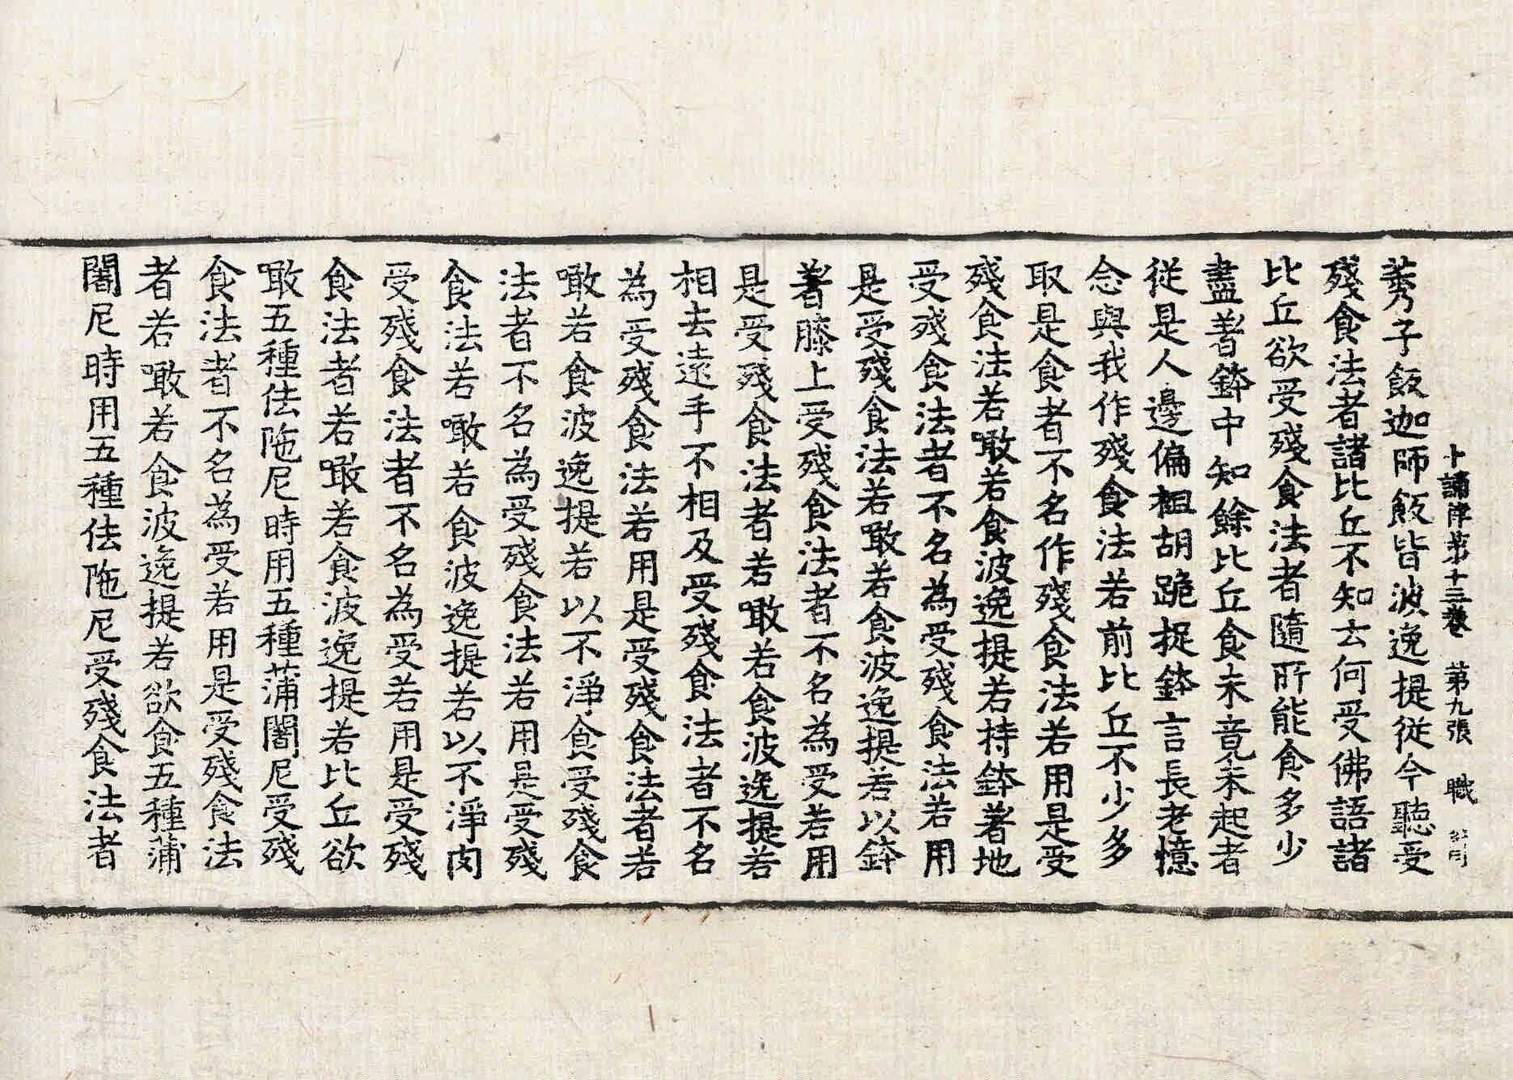 十誦律第十三卷　第九張　職
莠子飯迦師飯皆波逸提從今聽受
殘食法者諸比丘不知云何受佛語諸
比丘欲受殘食法者隨所能食多少
盡著鉢中知餘比丘食未竟未起者
從是人邊偏袒胡跪捉鉢言長老憶
念與我作殘食法若前比丘不少多
取是食者不名作殘食法若用是受
殘食法若噉若食波逸提若持鉢著地
受殘食法者不名為受殘食法若用
是受殘食法若噉若食波逸提若以鉢
著膝上受殘食法者不名為受若用
是受殘食法者若噉若食波逸提若
相去遠手不相及受殘食法者不名
為受殘食法若用是受殘食法者若
噉若食波逸提若以不淨食受殘食
法者不名為受殘食法若用是受殘
食法若噉若食波逸提若以不淨肉
受殘食法者不名為受若用是受殘
食法者若噉若食波逸提若比丘欲
噉五種佉陁尼時用五種蒲闍尼受殘
食法者不名為受若用是受殘食法
者若噉若食波逸提若欲食五種蒲
闍尼時用五種佉陁尼受殘食法者